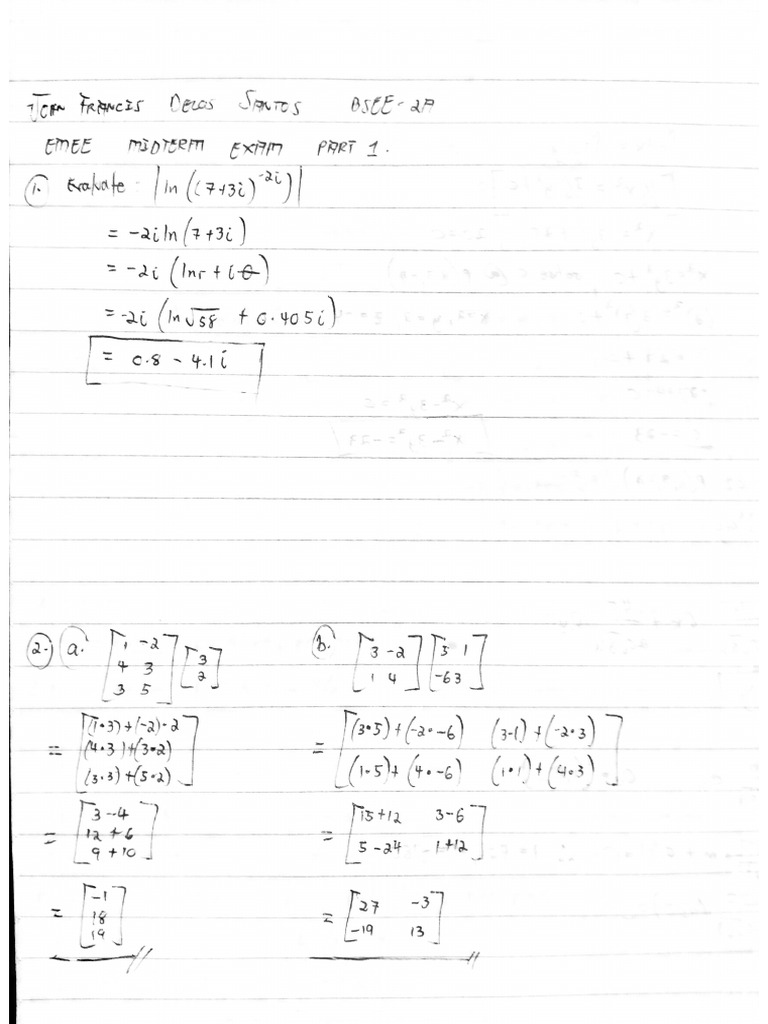 JOHN FRANCIS DELOS SANTOS BSEE-2A
EMEE MIDTERM EXAM PART 1.
1. Evaluate: |ln((7+3i)^-2i)|
= -2i ln(7+3i)
= -2i (ln r + iθ)
= -2i (ln √58 + 0.405i)
= 0.8 - 4.1i
2. a. [1 -2] [3]
[4 3] [2]
[3 5]
= [(1•3)+(-2)•2]
[(4•3)+(3•2)]
[(3•3)+(5•2)]
= [3-4]
[12+6]
[9+10]
= [-1]
[18]
[19]
b. [3 -2] [5 1]
[1 4] [-6 3]
= [(3•5)+(-2•-6) (3•1)+(-2•3)]
[(1•5)+(4•-6) (1•1)+(4•3)]
= [15+12 3-6]
[5-24 1+12]
= [27 -3]
[-19 13]